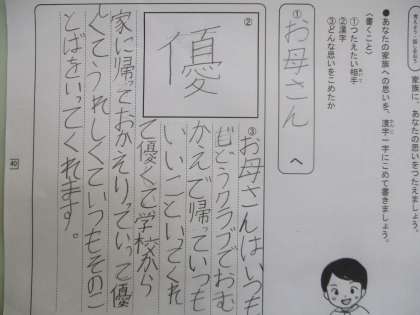 家族に、あなたの思いをつたえましょう。
●あなたの家族への思いを、漢字一字にこめて書きましょう。
〈書くこと〉
①つたえたい相手
②漢字
③どんな思いをこめたか
①
お母さん へ
②
優
③
お母さんはいつも
じどうクラブでおむ
かえで帰っていつも
いいこといってくれ
て優くて学校から
家に帰っておかえりっていって優
しくてうれしくていつもそのこ
とばをいってくれます。
40